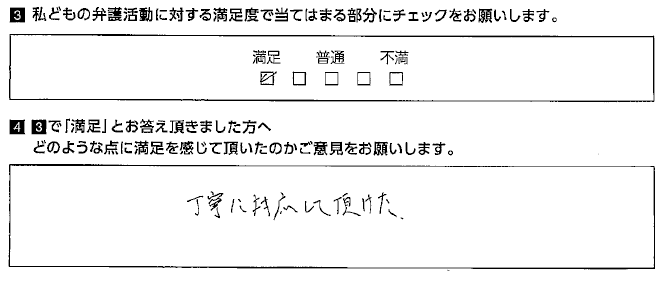 3 私どもの弁護活動に対する満足度で当てはまる部分にチェックをお願いします。
満足 普通 不満
☑ □ □ □ □
4 3で「満足」とお答え頂きました方へ
どのような点に満足を感じて頂いたのかご意見をお願いします。
丁寧に対応して頂けた、